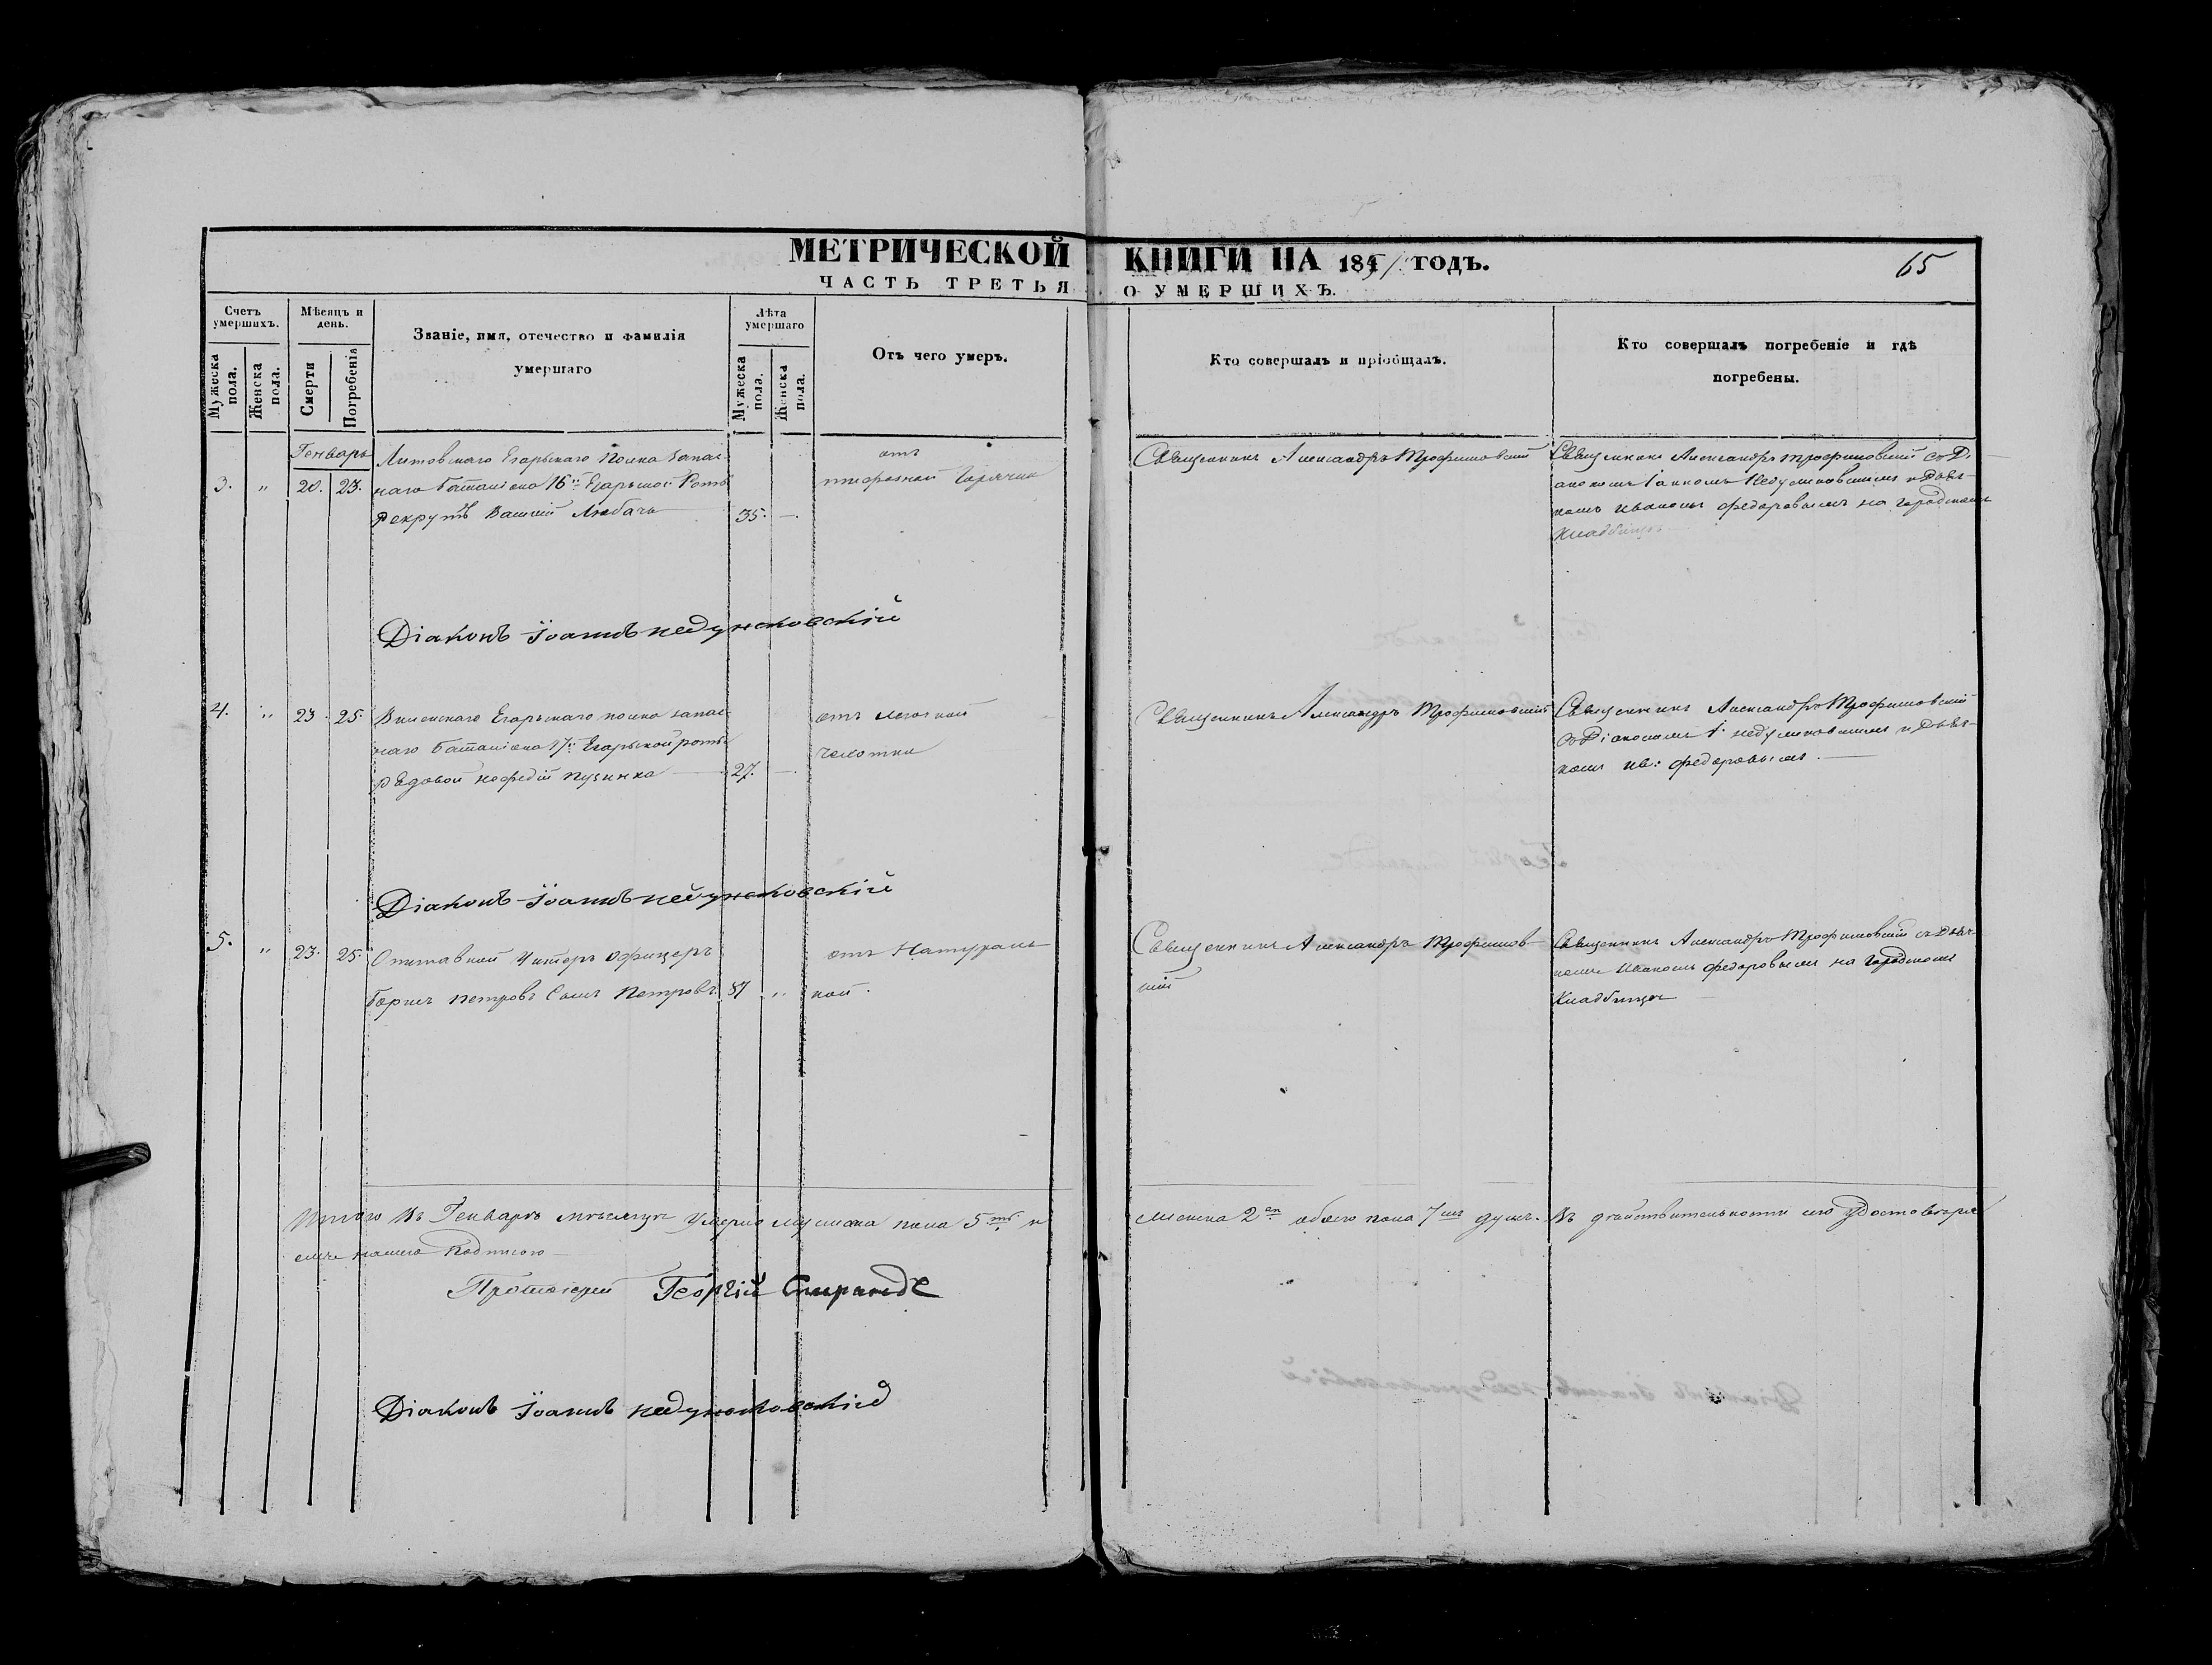 МЕТРИЧЕСКОЙ КНИГИ НА 1851 ГОДЪ.
65
ЧАСТЬ ТРЕТЬЯ О УМЕРШИХЪ.
Счетъ умершихъ.
Мужеска пола.
Женска пола.
Мѣсяцъ и день.
Смерти
Погребенія
Званіе, имя, отечество и фамилія
умершаго
Лѣта умершаго
Мужеска пола.
Женска пола.
Отъ чего умеръ.
Кто совершалъ и пріобщалъ.
Кто совершалъ погребеніе и гдѣ
погребены.
Генварь
3. " 20. 23.
Литовскаго Егарьскаго Полка Запас-
наго Баталіона 16й Егарьской Роты
Рекрутъ Василій Любачъ 35. —
отъ
тифозной Горячки
Священникъ Александръ Трофимовскій
Священникъ Александръ Трофимовскій съ Ді-
акономъ Іанномъ Недумковскимъ и Дьяч-
комъ Иваномъ Федоровымъ на Городскомъ
Кладбищѣ
Діаконъ Іоаннъ Недумковскій
4. " 23. 25.
Виленскаго Егарьскаго полка запас-
наго Баталіона 17й Егарьской роты
рядовой 27. —
отъ легочной
чахотки
Священникъ Александръ Трофимовскій
Священникъ Александръ Трофимовскій
съ Діакономъ І. Недумковскимъ и Дьяч-
комъ Ив: Федоровымъ. —
Діаконъ Іоаннъ Недумковскій
5. " 23. 25.
Отставной Унтеръ Офицеръ
Борисъ Петровъ Сынъ Петровъ. 87 "
отъ Натураль-
ной.
Священникъ Александръ Трофимов-
скій
Священникъ Александръ Трофимовскій съ Дьяч-
комъ Иваномъ Федоровымъ на Городскомъ
Кладбищѣ
Итого Въ Генварѣ мѣсяцѣ Умерло мужеска пола 5ть и женска 2ѣ обоего пола 7мь душъ. Въ дѣйствительности сего Удостовѣря
емъ нашею Подписью —
Протоіерей Георгій
Діаконъ Іоаннъ Недумковскій